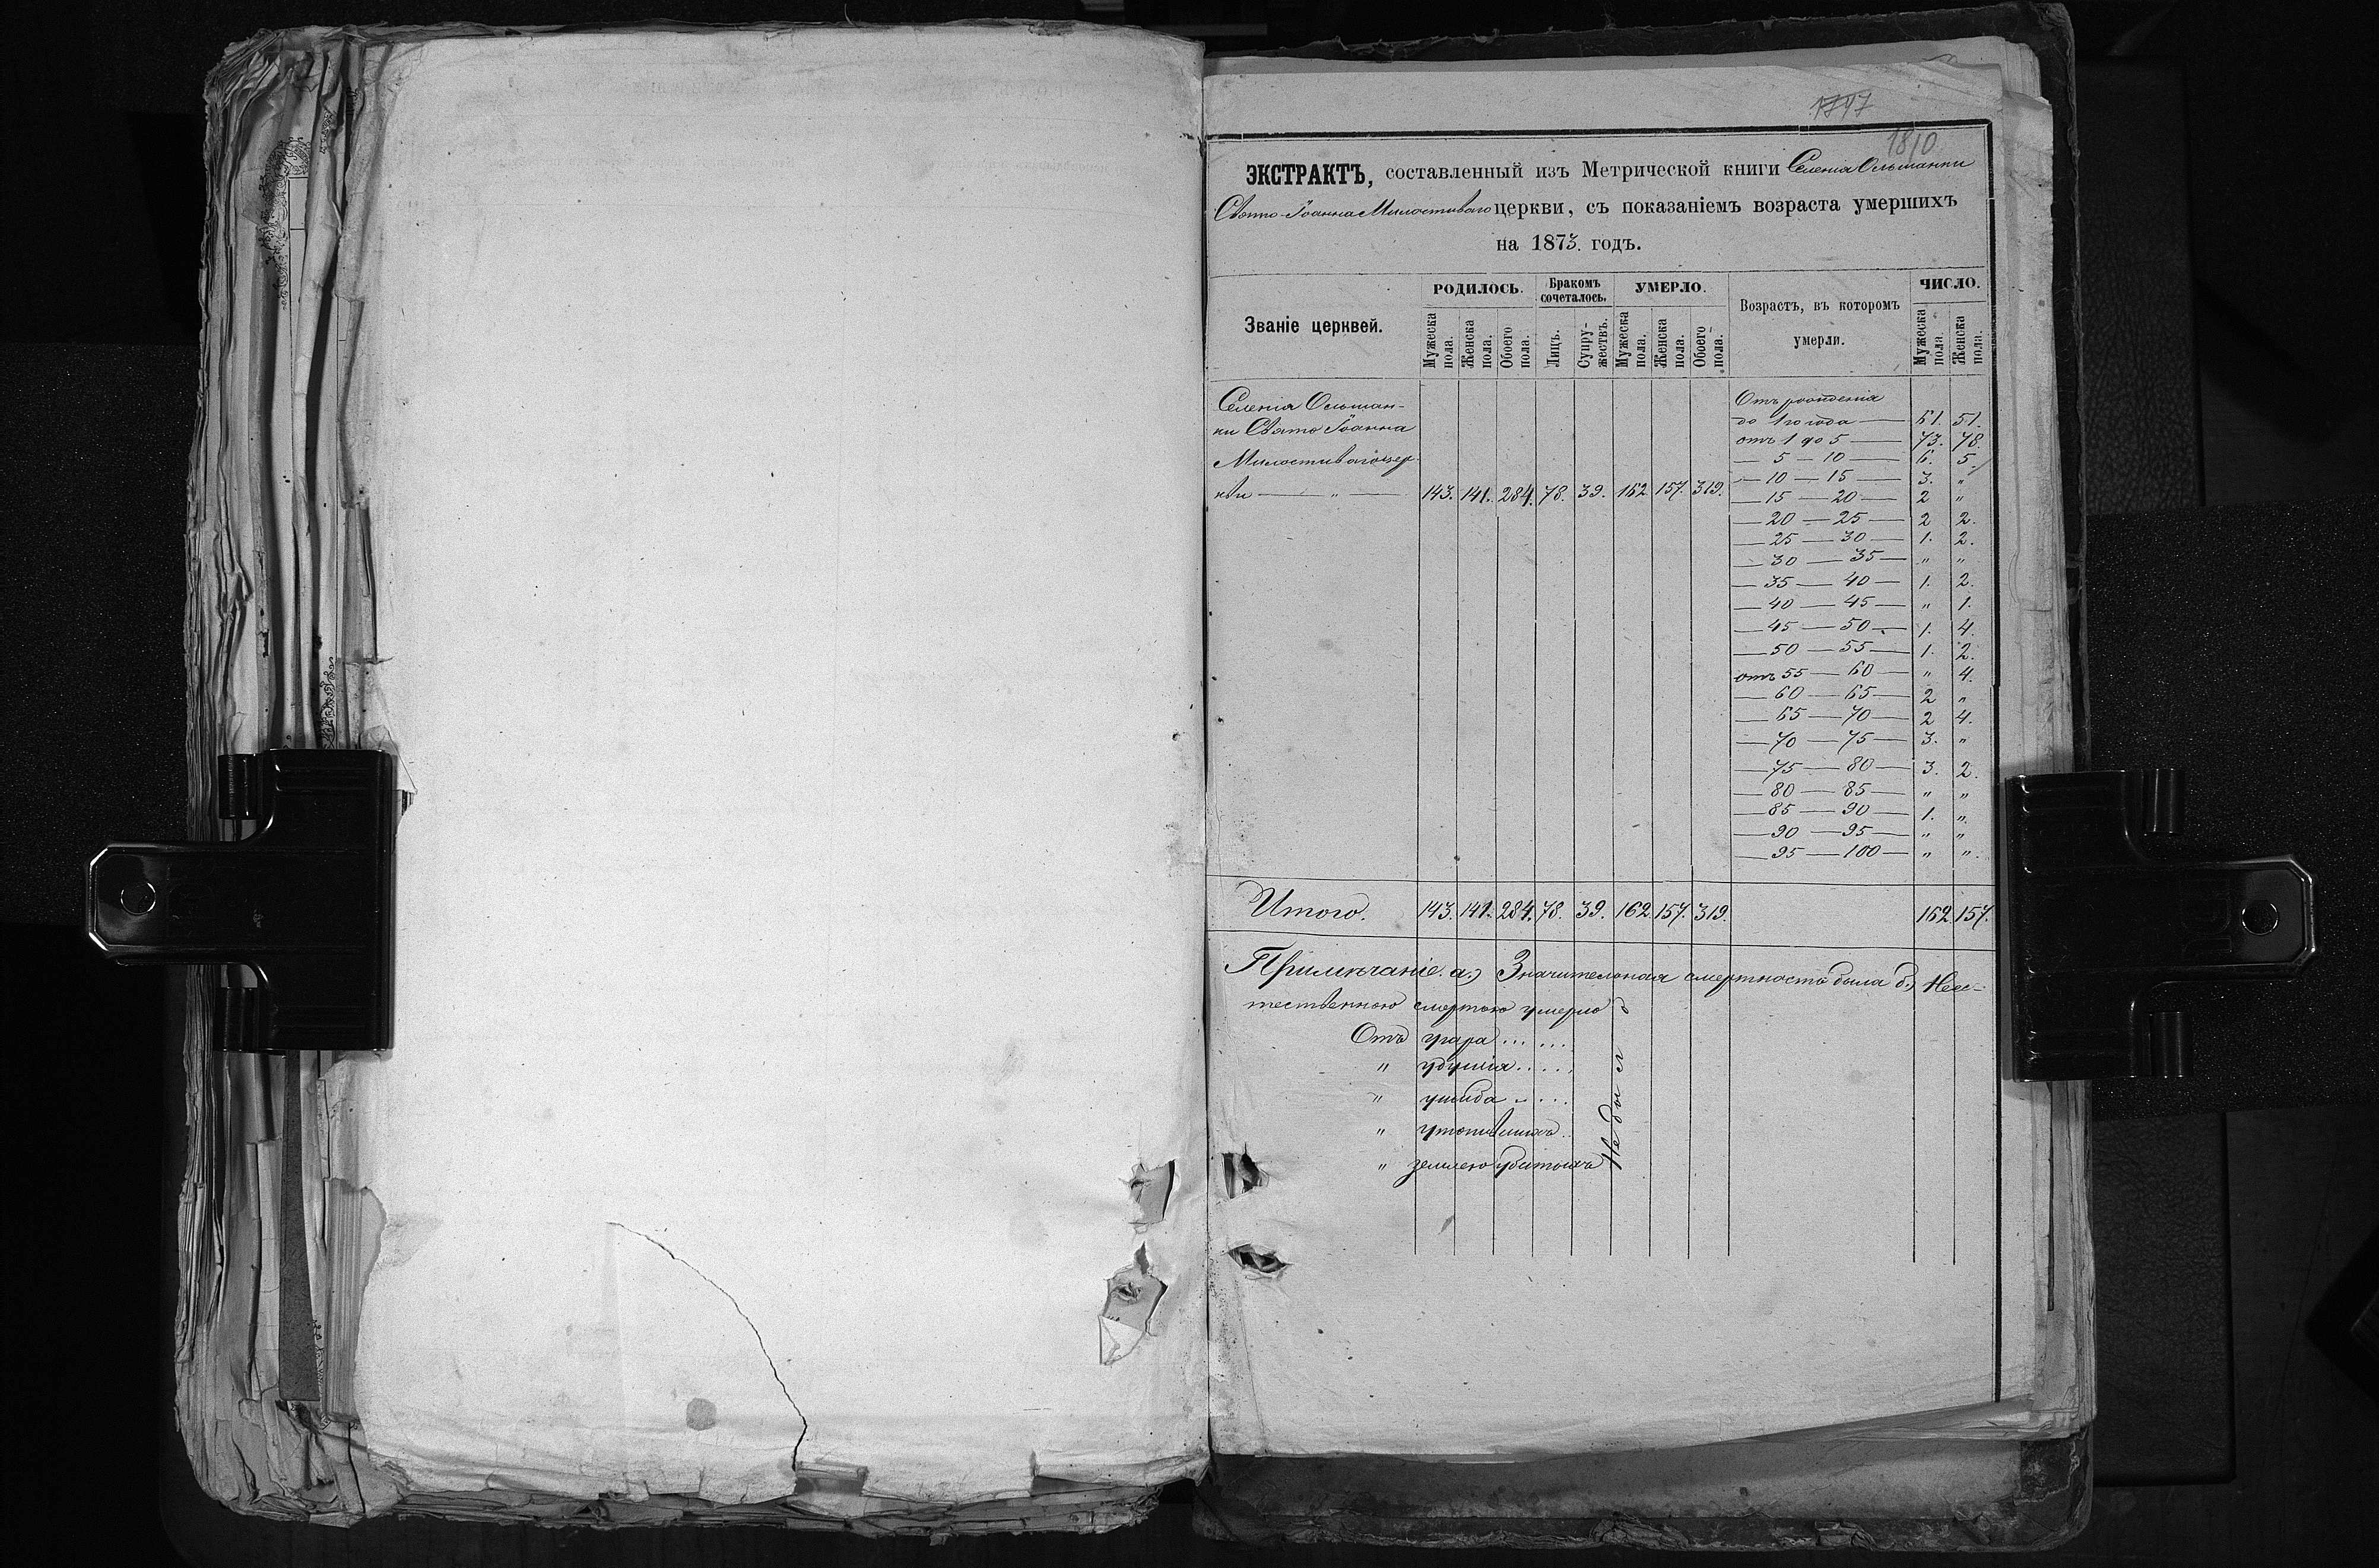 1747
1810
ЭКСТРАКТЪ, составленный изъ Метрической книги Селенія Ольшанки
Свято-Іоанна Милостиваго церкви, съ показаніемъ возраста умершихъ
на 1873. годъ.
Званіе церквей.
РОДИЛОСЬ.
Бракомъ сочеталось.
УМЕРЛО.
Возрастъ, въ которомъ умерли.
ЧИСЛО.
Мужеска пола.
Женска пола.
Обоего пола.
Лицъ.
Супружествъ.
Мужеска пола.
Женска пола.
Обоего пола.
Мужеска пола.
Женска пола.
Селенія Ольшан-
ки Свято Іоанна
Милостиваго цер-
кви — „ — 143. 141. 284. 78. 39. 162 157. 319.
Отъ рожденія
до 1 го года — 61. 51.
отъ 1 до 5 — 73. 78.
— 5 — 10 — 6. 5.
— 10 — 15 — 3. „
— 15 — 20 — 2 „
— 20 — 25 — 2 2.
— 25 — 30 — 1. 2.
— 30 — 35 — „ „
— 35 — 40 — 1. 2.
— 40 — 45 — „ 1.
— 45 — 50 — 1. 4.
— 50 — 55 — 1. 2.
отъ 55 — 60 — „ 4.
— 60 — 65 — 2 „
— 65 — 70 — 2 4.
— 70 — 75 — 3. „
— 75 — 80 — 3. 2.
— 80 — 85 — „ „
— 85 — 90 — 1. „
— 90 — 95 — „ „
— 95 — 100 — „ „.
Итого. 143. 141. 284. 78. 39. 162 157. 319. 162 157.
Примѣчаніе. а.) Значительная смертность была б.) Неес-
тественною смертью умерло
Отъ удара ......
„ удушія .....
„ ушиба .....
„ утопившихъ ..
„ землею убитыхъ
Не было